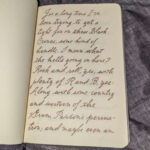 For a long time I've
been trying to get a
tight for on these Black
some kind of
handle. I mean what
the hells going on here?
Rock and roll, yes, with
plenty of R and B, yes
Along with some country
and mixture of the
persua-
tion, and maybe even an